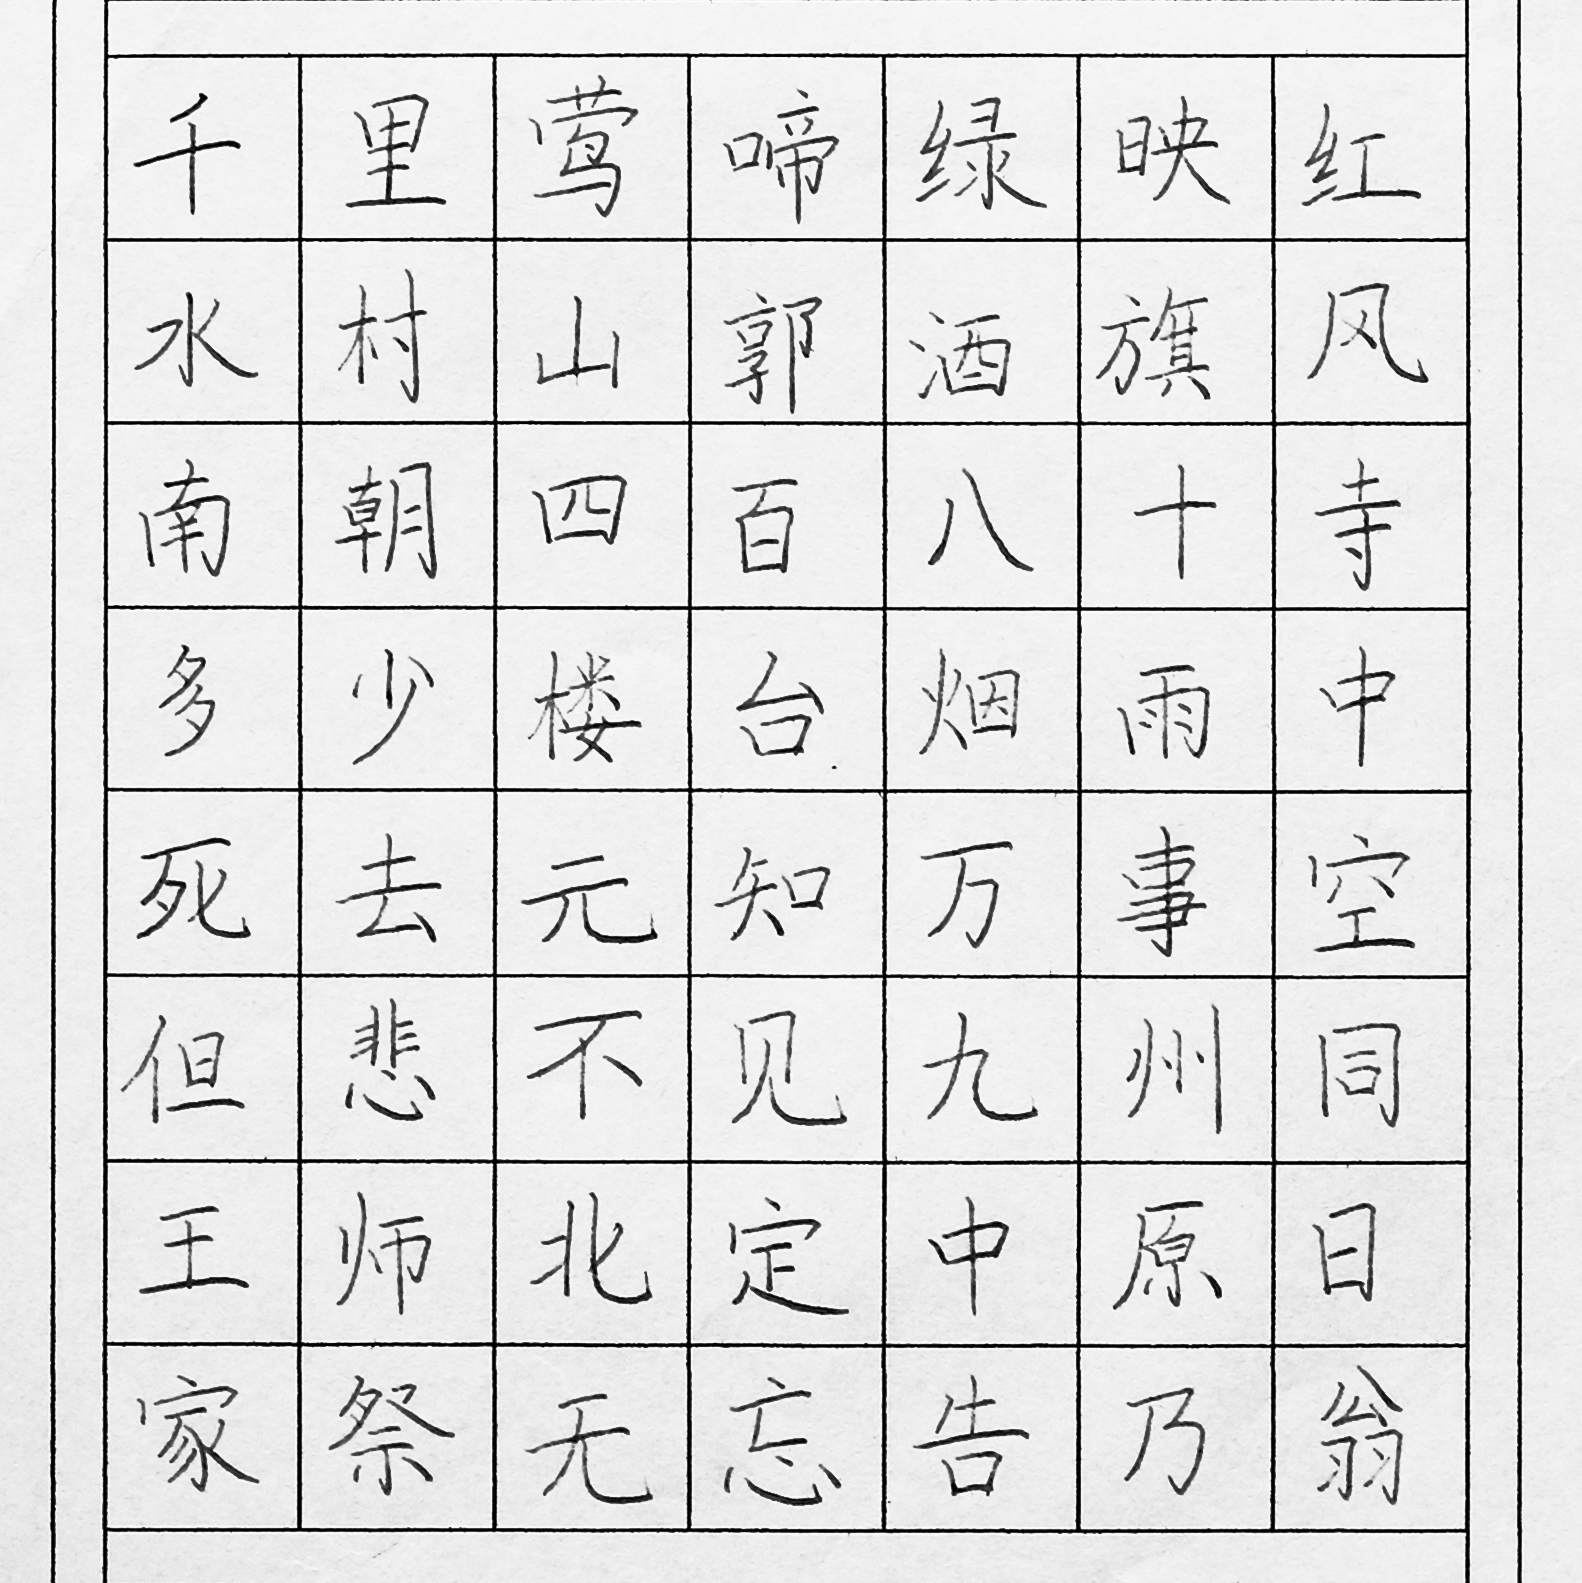 千里莺啼绿映红
水村山郭酒旗风
南朝四百八十寺
多少楼台烟雨中
死去元知万事空
但悲不见九州同
王师北定中原日
家祭无忘告乃翁